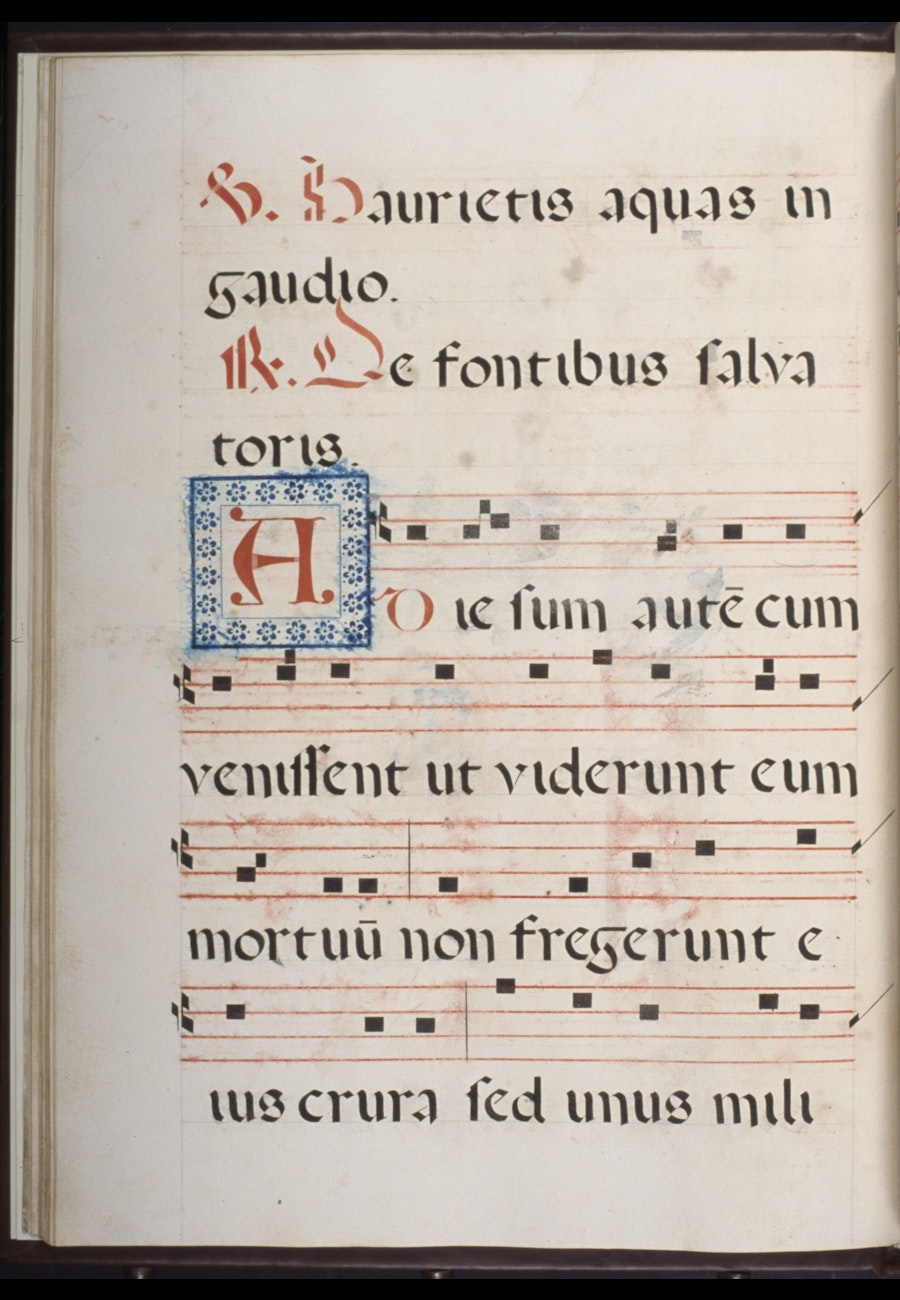 V. Haurietis aquas in
gaudio.
R. De fontibus ſalva
toris.
AD ieſum autē cum
veniſſent ut viderunt eum
mortuū non fregerunt e
ius crura ſed unus mili